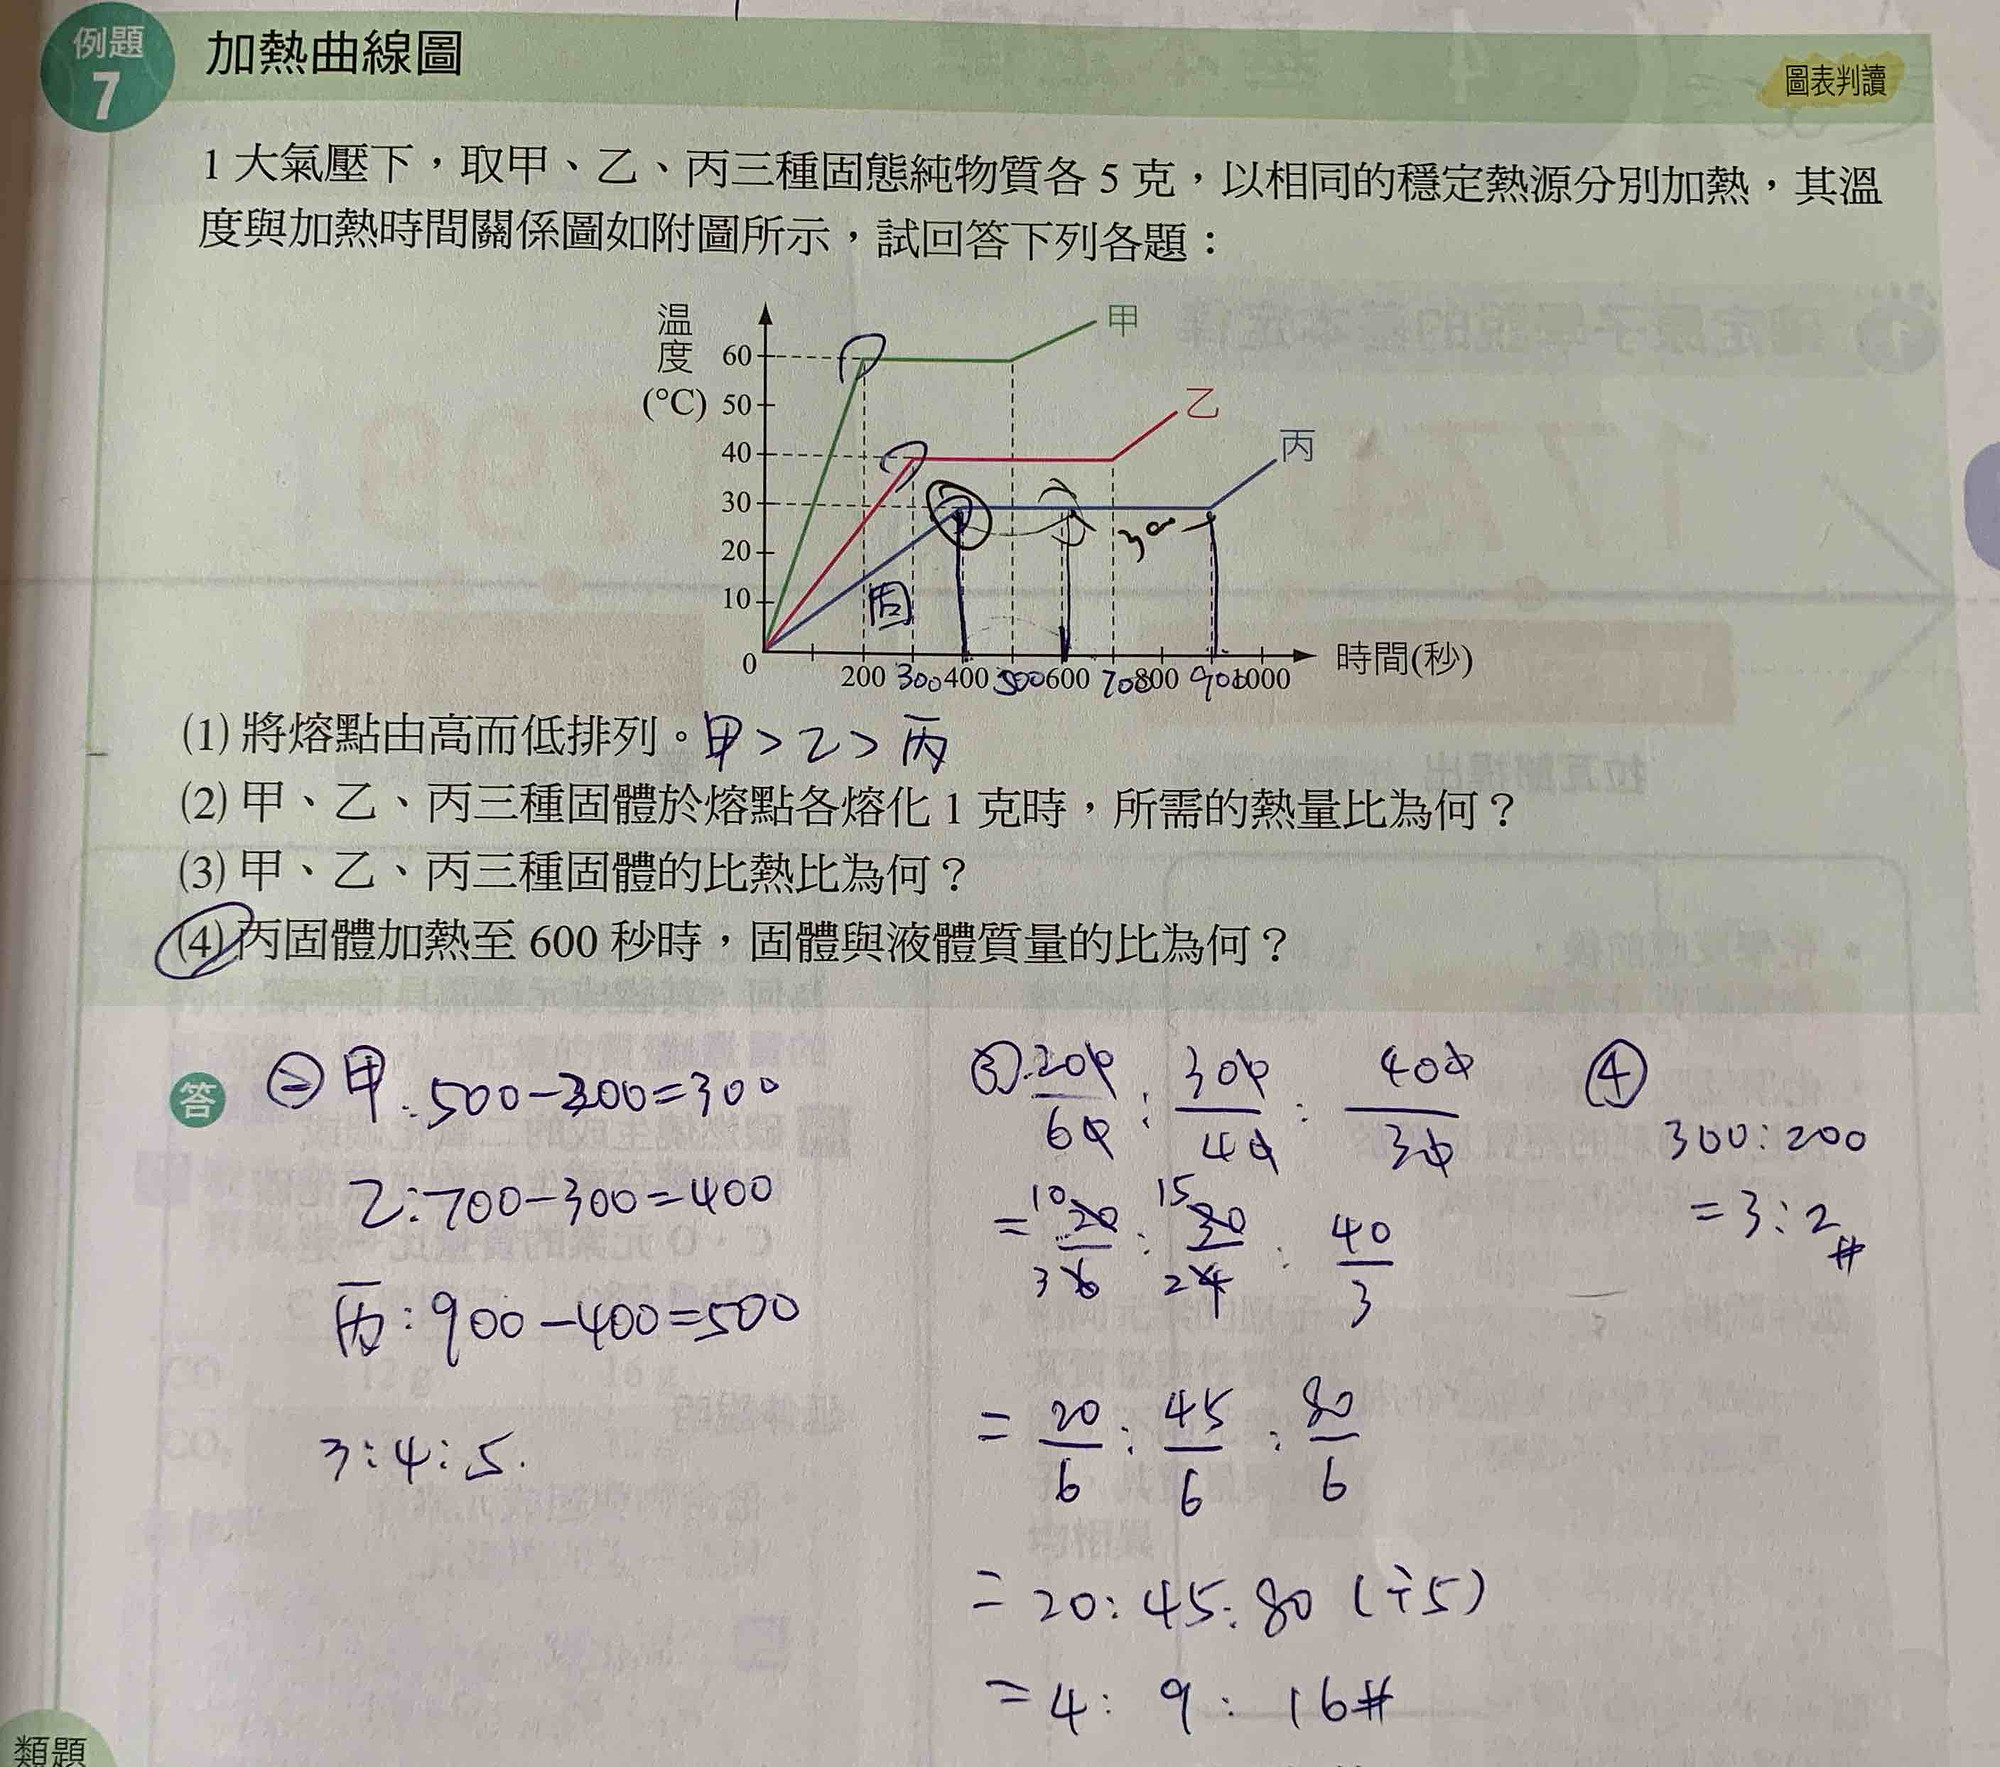 例題
7
加熱曲線圖
圖表判讀
1 大氣壓下，取甲、乙、丙三種固態純物質各 5 克，以相同的穩定熱源分別加熱，其溫
度與加熱時間關係圖如附圖所示，試回答下列各題：
溫度
(°C)
60
50
40
30
20
10
0
甲
乙
丙
固
300
200 300 400 500 600 700 800 900 1000
時間(秒)
(1) 將熔點由高而低排列。甲＞乙＞丙
(2) 甲、乙、丙三種固體於熔點各熔化 1 克時，所需的熱量比為何？
(3) 甲、乙、丙三種固體的比熱比為何？
(4) 丙固體加熱至 600 秒時，固體與液體質量的比為何？
答
㊁ 甲：500-200=300
乙：700-300=400
丙：900-400=500
3:4:5.
③ 200/60 : 300/40 : 400/30
= 10 20/3 6 : 15 30/2 4 : 40/3
= 20/6 : 45/6 : 80/6
= 20:45:80 (÷5)
= 4 : 9 : 16#
④
300:200
= 3:2#
類題